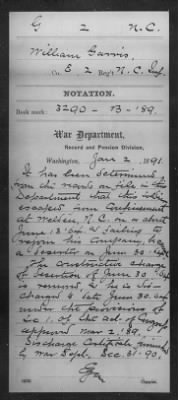 G 2 N.C.
William Garris,
Co. E, 2 Reg't N.C. Inf.
NOTATION.
Book mark: 3290-B-'89.
War Department,
Record and Pension Division,
Washington, Jan 2, 1891.
It has been determined
from the records on file in this
Department that this soldier
escaped from imprisonment
at Weldon, N.C. on or about
June 13 '64, & failing to
rejoin his company, became
a deserter on June 30 '64.
The constructive charge
of desertion of June 30, '64
is removed, & he is dis-
charged to date June 30, '64,
under the provisions of
Sec. 1. of the act of Congress
approved Mar 2, '89.
Discharge Certificate furnished
by War Dept. Dec. 31-90.
Copyist.